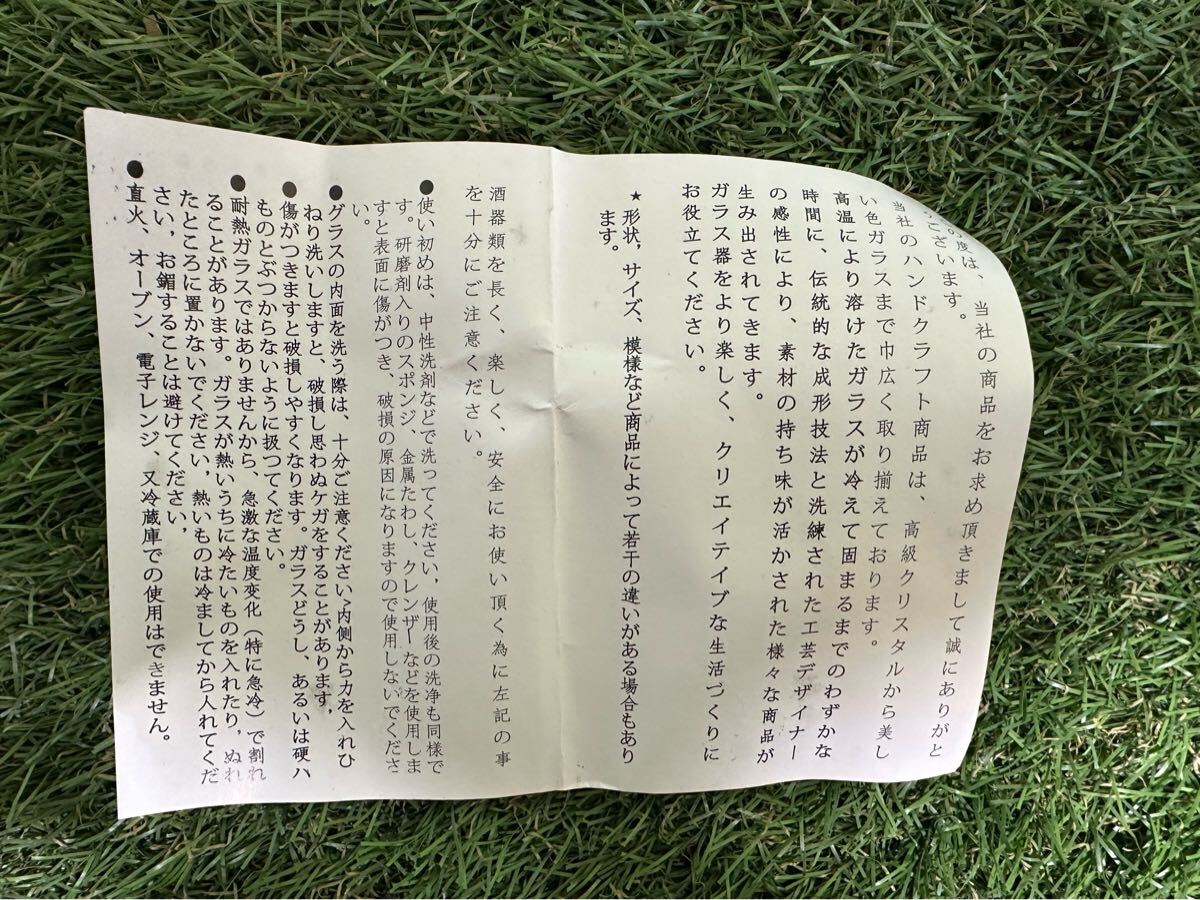 の度は、当社の商品をお求め頂きまして誠にありがと
うございます。
当社のハンドクラフト商品は、高級クリスタルから美し
い色ガラスまで巾広く取り揃えております。
高温により溶けたガラスが冷えて固まるまでのわずかな
時間に、伝統的な成形技法と洗練された工芸デザイナー
の感性により、素材の持ち味が活かされた様々な商品が
生み出されてきます。
ガラス器をより楽しく、クリエイテイブな生活づくりに
お役立てください。
★形状，サイズ、模様など商品によって若干の違いがある場合もあり
ます。
酒器類を長く、楽しく、安全にお使い頂く為に左記の事
を十分にご注意ください。
●使い初めは、中性洗剤などで洗ってください，使用後の洗浄も同様で
す。研磨剤入りのスポンジ、金属たわし、クレンザーなどを使用しま
すと表面に傷がつき、破損の原因になりますので使用しないでくださ
い。
●グラスの内面を洗う際は、十分ご注意ください、内側から力を入れひ
ねり洗いしますと、破損し思わぬケガをすることがあります，
●傷がつきますと破損しやすくなります。ガラスどうし、あるいは硬ハ
ものとぶつからないように扱つてください。
●耐熱ガラスではありませんから、急激な温度変化（特に急冷）で割れ
ることがあります。ガラスが熱いうちに冷たいものを入れたり，ぬれ
たところに置かないでください，熱いものは冷ましてから人れてくだ
さい，お鍋することは避けてください，
●直火、オーブン、電子レンジ、又冷蔵庫での使用はできません。